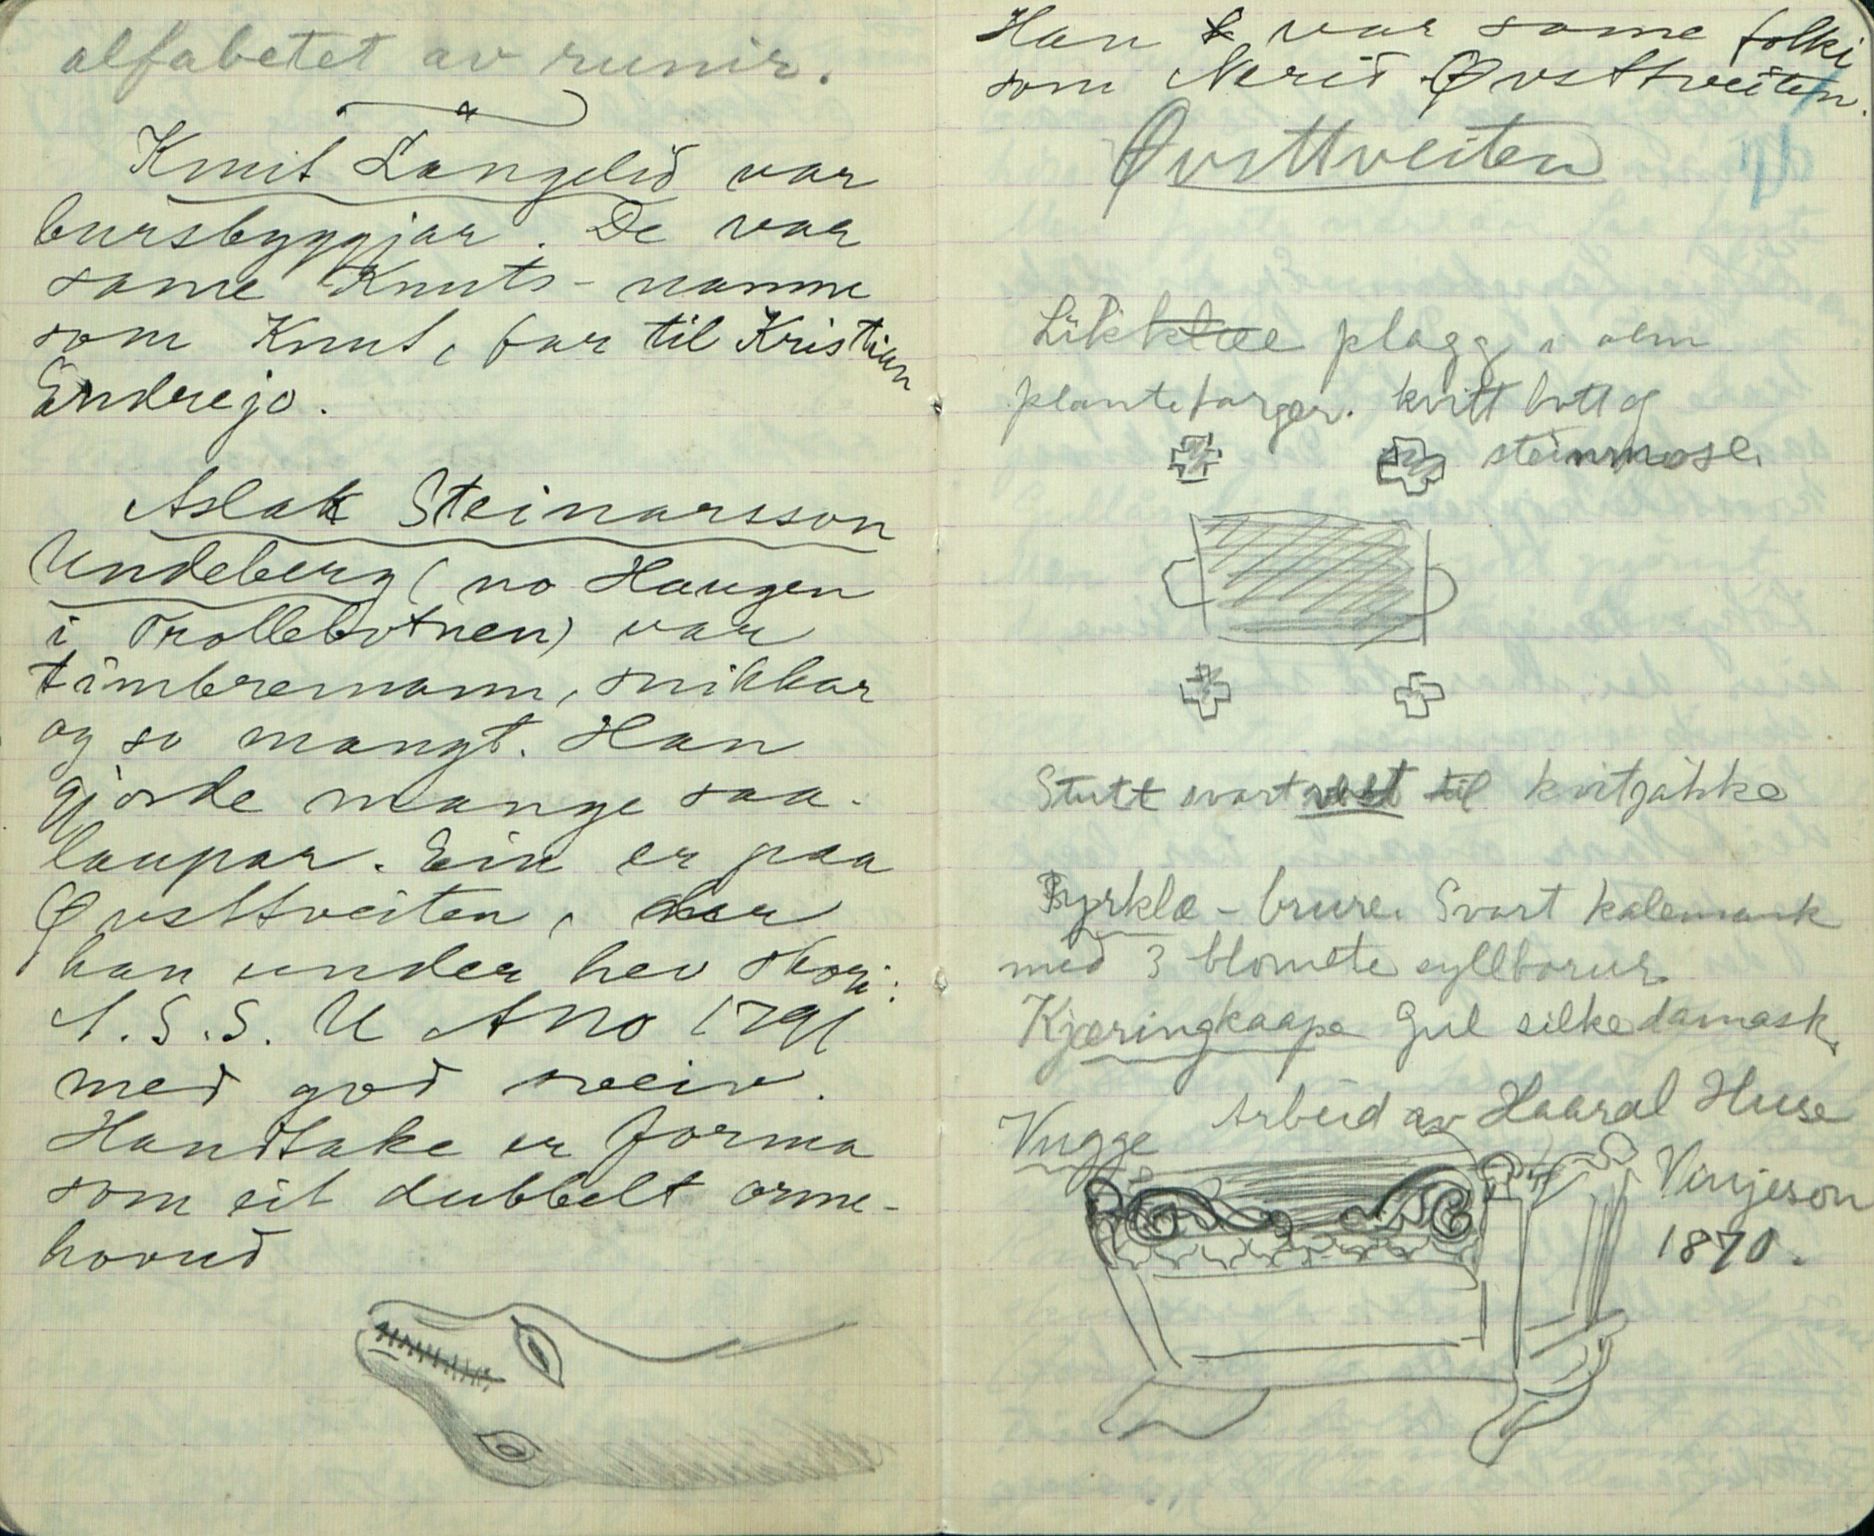 alfabetet av runir.
Knut Langelid var
bursbyggjar. De var
same Knuts-namne
som Knut, far til Kristian
Endrejo.
Aslak Steinarsson
Undeberg (no Haugen
i Trollebotnen) var
timbremann, snikkar
og so mangt. Han
gjorde mange saa-
laupar. Ein er paa
Øvsttveiten, der
han under hev skori:
A.S.S. U Ano 1791
med god sveiv.
Handtake er forma
som eit dubbelt orme-
hovud
Han var same folki
som Nerid Øvsttveiten.
Øvsttveiten
Likklæe plagg i
plantefarger. kvitt bott og
steinmose.
Stutt svart vest til kvitjakke
Byrklæ - brure. Svart kalemank
med 3 blomete syllborur
Kjæringkaape Gul silkedamask
Vugge Arbeid av Haaral Huse
Vinjeson
1870.